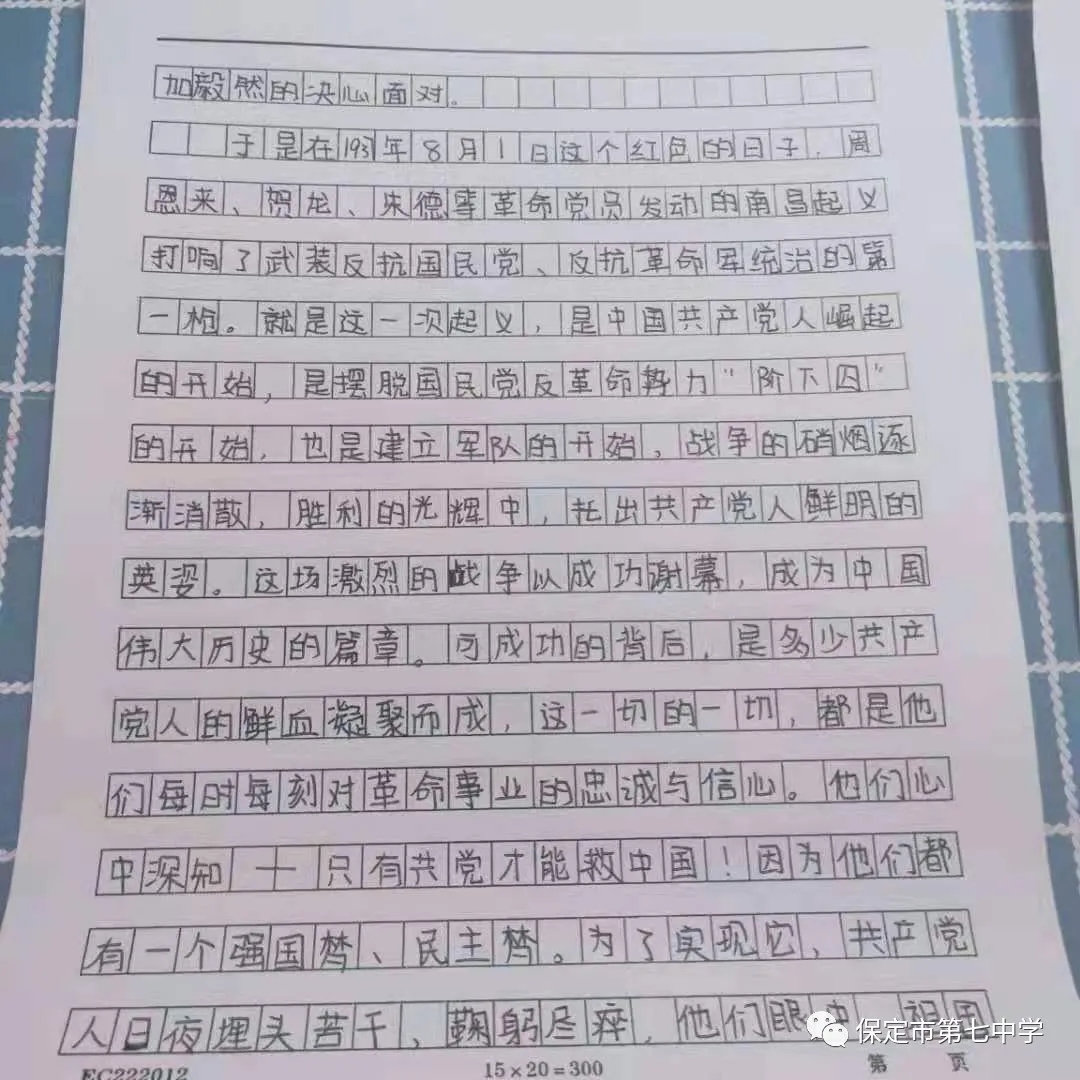 加毅然的决心面对。
于是在1937年8月1日这个红色的日子，周
恩来、贺龙、朱德等革命党员发动的南昌起义
打响了武装反抗国民党、反抗革命军统治的第
一枪。就是这一次起义，是中国共产党人崛起
的开始，是摆脱国民党反革命势力“阶下囚”
的开始，也是建立军队的开始。战争的硝烟逐
渐消散，胜利的光辉中，托出共产党人鲜明的
英姿。这场激烈的战争以成功谢幕，成为中国
伟大历史的篇章。可成功的背后，是多少共产
党人的鲜血凝聚而成，这一切的一切，都是他
们每时每刻对革命事业的忠诚与信心。他们心
中深知——只有共党才能救中国！因为他们都
有一个强国梦、民主梦。为了实现它，共产党
人日夜埋头苦干，鞠躬尽瘁，他们眼中，祖国
EC222012 15×20=300 第 页
保定市第七中学